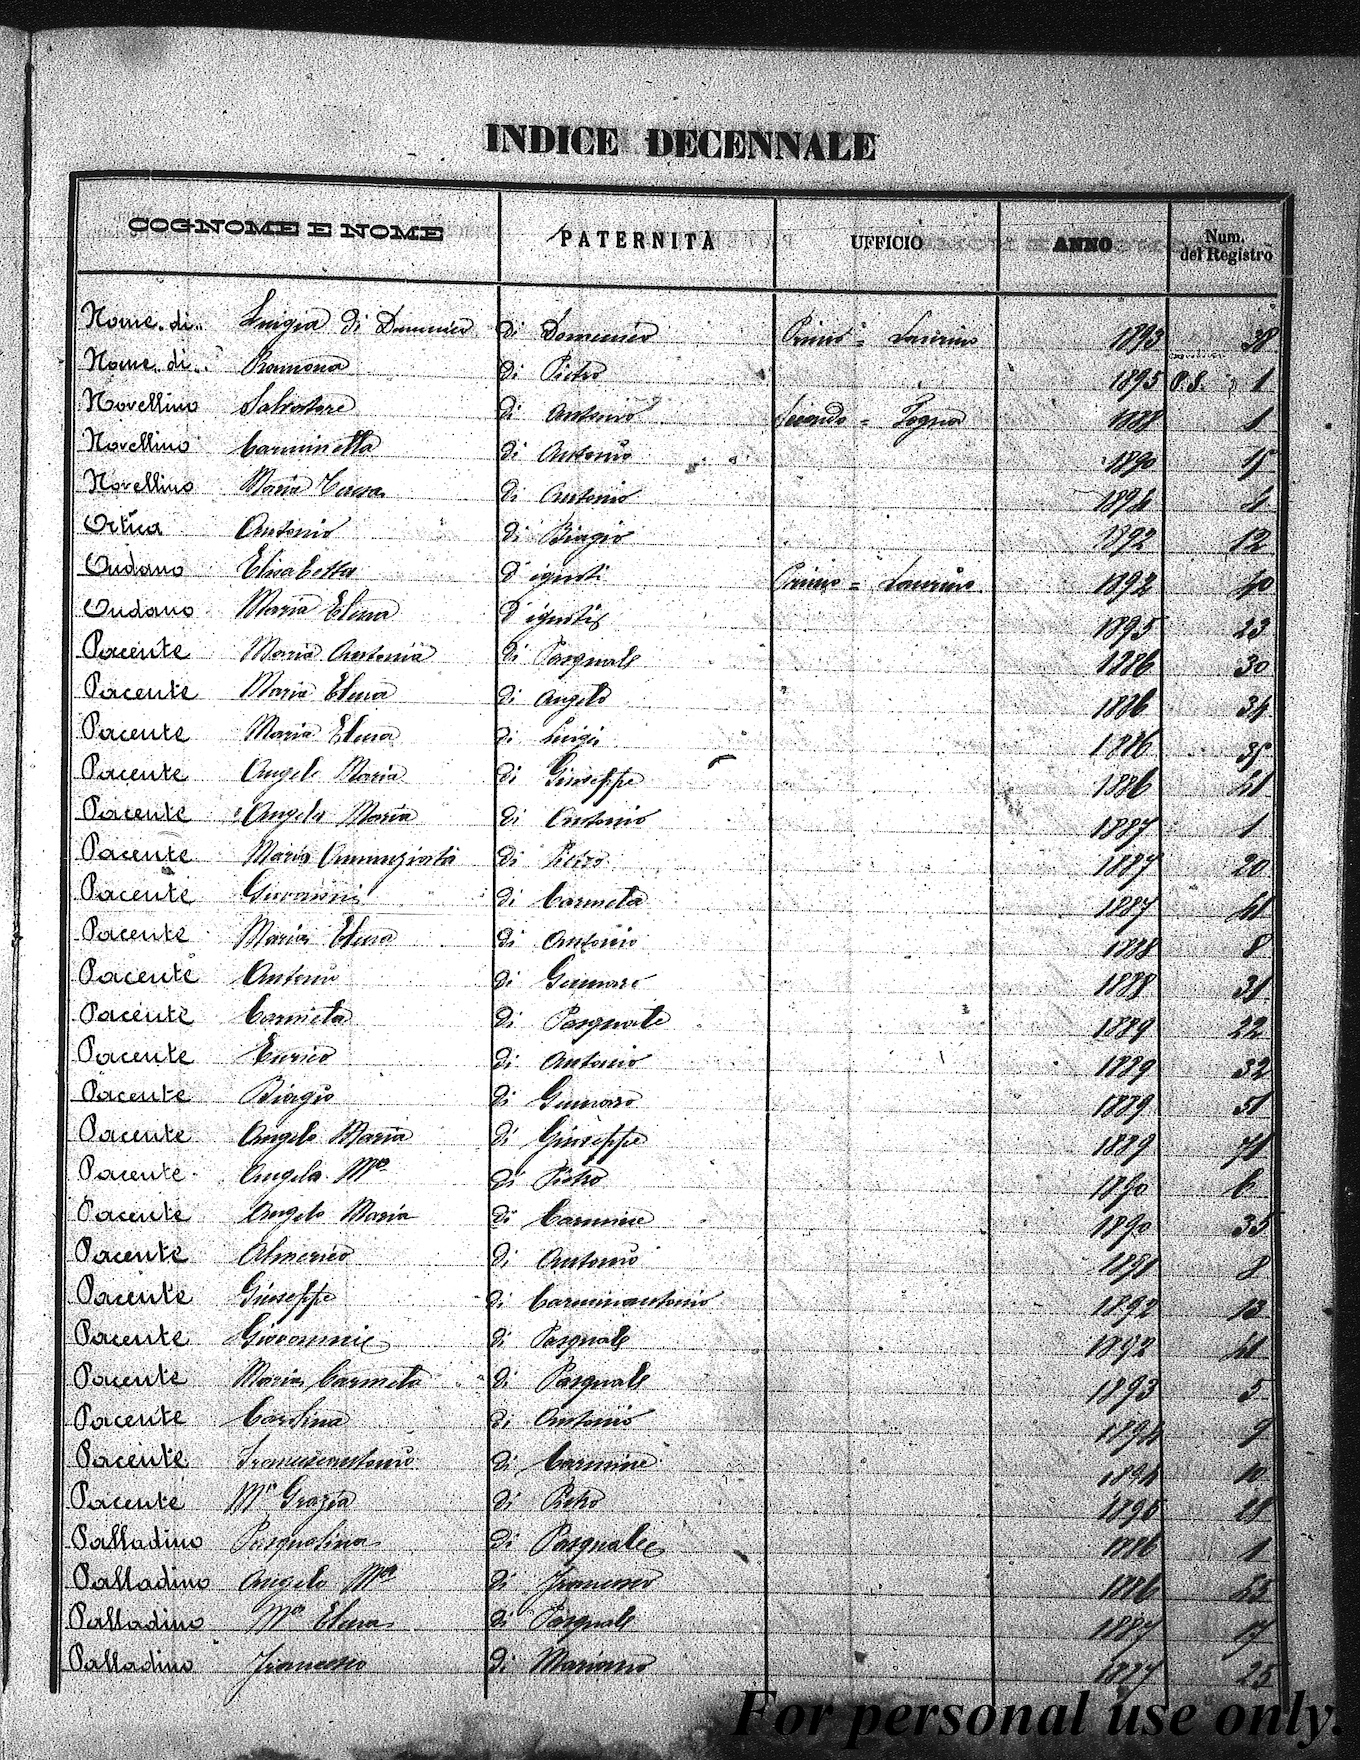 INDICE DECENNALE
COGNOME E NOME PATERNITÀ UFFICIO ANNO Num. del Registro
Nome. di.. Luigia di Domenico di Domenico Primo = Laurino 1893 38
Nome. di.. Ramona di Pietro 1895 P.S. " 1
Novellino Salvatore di Antonio Secondo = Fogna 1888 1
Novellino Carminella di Antonio 1890 15
Novellino Maria Teresa di Antonio 1894 4
Ortica Antonio di Biagio 1892 12
Ondano Elisabetta d'ignoti Primo = Laurino 1892 40
Ondano Maria Elena d'ignoti 1895 23
Pacente Maria Antonia di Pasquale 1886 30
Pacente Maria Elena di Angelo 1886 34
Pacente Maria Elena di Luigi 1886 35
Pacente Angelo Maria di Giuseppe 1886 41
Pacente Angela Maria di Antonio 1887 1
Pacente Maria Annunziata di Pietro 1887 20
Pacente Giovanni di Carmela 1887 41
Pacente Maria Elena di Antonio 1888 8
Pacente Antonio di Gennaro 1888 31
Pacente Carmela di Pasquale 1889 22
Pacente Enrico di Antonio 1889 32
Pacente Biagio di Gennaro 1889 51
Pacente Angelo Maria di Giuseppe 1889 71
Pacente Angela Mª di Pietro 1890 6
Pacente Angelo Maria di Carmine 1890 35
Pacente Almerico di Antonio 1891 8
Pacente Giuseppe di Carminantonio 1892 13
Pacente Giovannie di Pasquale 1892 41
Pacente Maria Carmela di Pasquale 1893 5
Pacente Carolina di Antonio 1894 9
Pacente Francescantonio di Carmine 1894 10
Pacente Mª Grazia di Pietro 1895 18
Palladino Pasqualina di Pasquale 1886 1
Palladino Angelo Mª di Francesco 1886 25
Palladino Mª Elena di Pasquale 1887 17
Palladino Francesco di Mariano 1887 25
For personal use only.